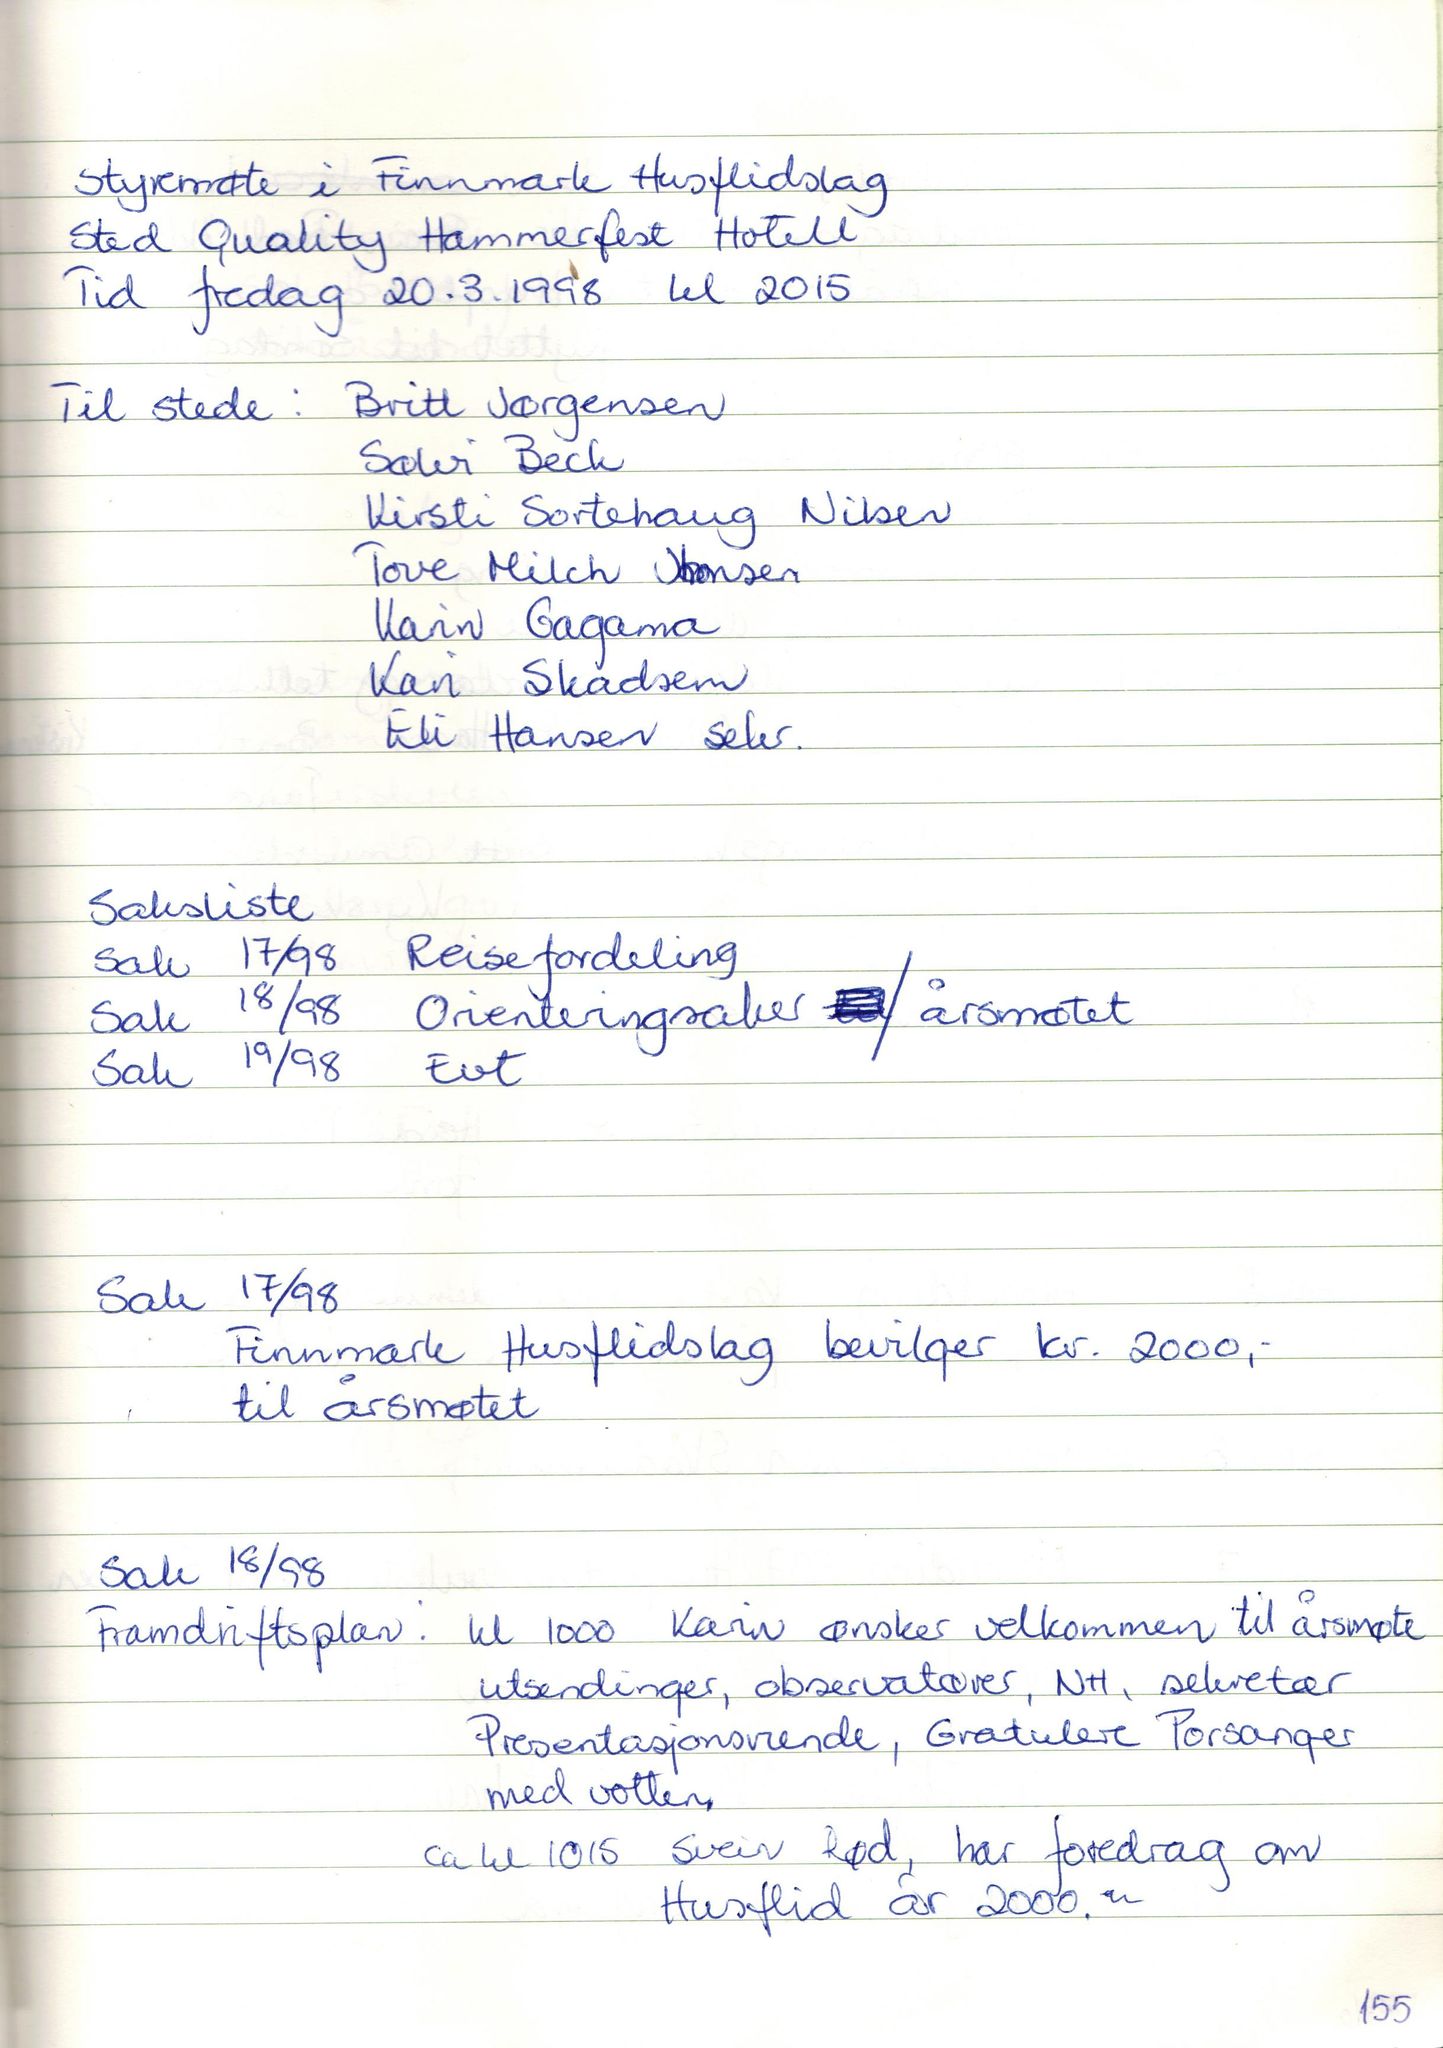 Styremøte i Finnmark Husflidslag
Sted Quality Hammerfest Hotell
Tid fredag 20.3.1998 kl 2015
Til stede: Britt Jørgensen
Solvi Beck
Kirsti Sortehaug Nilsen
Tove Milch
Karin Gagama
Kari Skadsem
Eli Hansen sekr.
Saksliste
Sak 17/98 Reisefordeling
Sak 18/98 Orienteringsaker / årsmøtet
Sak 19/98 Evt
Sak 17/98
Finnmark Husflidslag bevilger kr. 2000,-
til årsmøtet
Sak 18/98
Framdriftsplan: kl 1000 Karin ønsker velkommen til årsmøte
utsendinger, observatører, NH, sekretær
Presentasjonsrunde, Gratulere Porsanger
med votten.
ca kl 1015 Svein Rød, har foredrag om
Husflid år 2000.
155